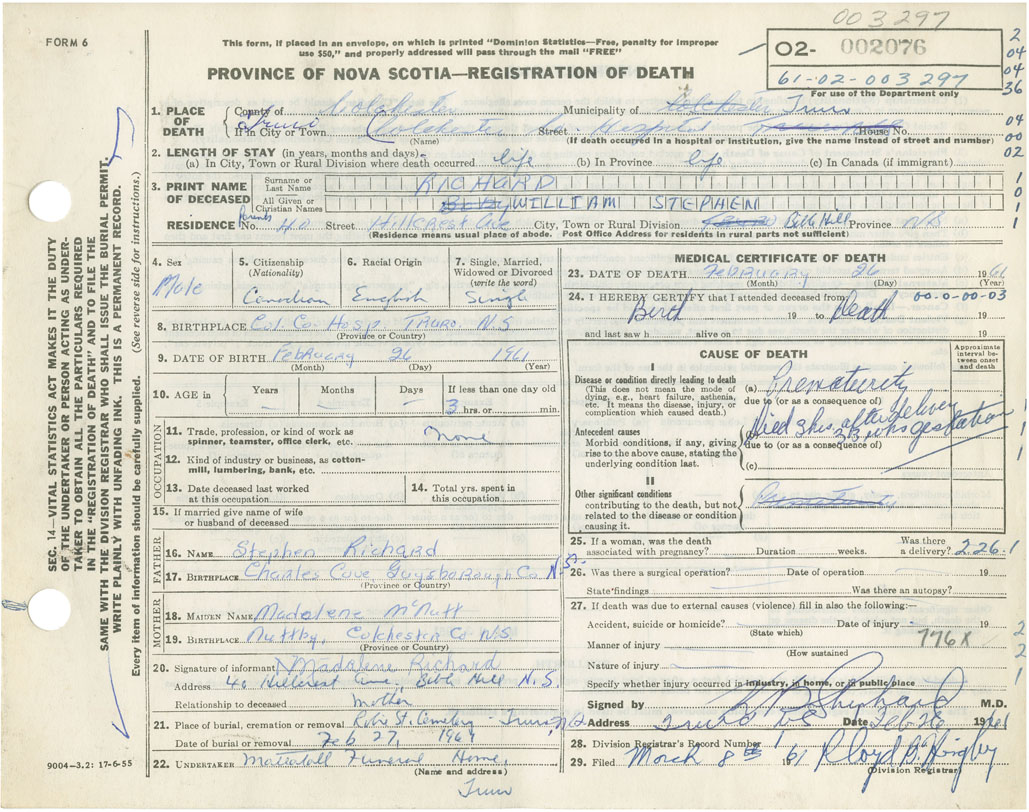 003297
FORM 6
This form, if placed in an envelope, on which is printed "Dominion Statistics—Free, penalty for improper
use $50," and properly addressed will pass through the mail "FREE"
PROVINCE OF NOVA SCOTIA—REGISTRATION OF DEATH
02- 002076
61-02-003297
For use of the Department only
2
04
04
36
04
00
02
1. PLACE OF DEATH
County of Colchester Municipality of Colchester Truro
If in City or Town Truro Colchester Co. Hospital Street House No.
(Name) (If death occurred in a hospital or institution, give the name instead of street and number)
2. LENGTH OF STAY (in years, months and days)-
(a) In City, Town or Rural Division where death occurred life (b) In Province life (c) In Canada (if immigrant)
3. PRINT NAME OF DECEASED
Surname or Last Name RICHARD
All Given or Christian Names Baby WILLIAM STEPHEN
RESIDENCE Parents No. 40 Street Hillcrest Ave City, Town or Rural Division Truro Bible Hill Province NS
(Residence means usual place of abode. Post Office Address for residents in rural parts not sufficient)
4. Sex Male
5. Citizenship (Nationality) Canadian
6. Racial Origin English
7. Single, Married, Widowed or Divorced (write the word) Single
8. BIRTHPLACE Col. Co. Hosp TRURO N.S
(Province or Country)
9. DATE OF BIRTH February 26 1961
(Month) (Day) (Year)
10. AGE in Years — Months — Days — If less than one day old 3 hrs. or min.
OCCUPATION
11. Trade, profession or kind of work as spinner, teamster, office clerk, etc. None
12. Kind of industry or business, as cotton-mill, lumbering, bank, etc.
13. Date deceased last worked at this occupation
14. Total yrs. spent in this occupation
15. If married give name of wife or husband of deceased
FATHER
16. NAME Stephen Richard
17. BIRTHPLACE Charles Cove Guysborough Co N.S.
(Province or Country)
MOTHER
18. MAIDEN NAME Madalene McNutt
19. BIRTHPLACE Nuttby, Colchester Co N.S
(Province or Country)
20. Signature of informant Madalene Richard
Address 40 Hillcrest Ave, Bible Hill N.S.
Relationship to deceased mother
21. Place of burial, cremation or removal Robie St. Cemetery - Truro
Date of burial or removal Feb 27, 1961
22. UNDERTAKER Mattatall Funeral Home,
(Name and address)
Truro
MEDICAL CERTIFICATE OF DEATH
23. DATE OF DEATH February 26 1961
(Month) (Day) (Year)
24. I HEREBY CERTIFY that I attended deceased from 00-0-00-03
Birth 19 to Death 19
and last saw h alive on 19
CAUSE OF DEATH
Approximate interval between onset and death
I
Disease or condition directly leading to death
(This does not mean the mode of dying, e.g., heart failure, asthenia, etc. It means the disease, injury, or complication which caused death.)
(a) Prematurity
due to (or as a consequence of)
Antecedent causes
Morbid conditions, if any, giving rise to the above cause, stating the underlying condition last.
(b) Died 3 hrs. after delivery
due to (or as a consequence of)
gestation
(c)
II
Other significant conditions contributing to the death, but not related to the disease or condition causing it.
Prematurity
25. If a woman, was the death associated with pregnancy? Duration weeks. Was there a delivery? 2.26.1
26. Was there a surgical operation? Date of operation 19
State findings Was there an autopsy?
27. If death was due to external causes (violence) fill in also the following:—
Accident, suicide or homicide? Date of injury 19
(State which)
Manner of injury 776X
(How sustained
Nature of injury
Specify whether injury occurred in industry, in home, or in public place
Signed by M.D.
Address Truro NS Date Feb 26 1961
28. Division Registrar's Record Number 1
29. Filed March 8th 1961
(Division Registrar)
SEC. 14—VITAL STATISTICS ACT MAKES IT THE DUTY
OF THE UNDERTAKER OR PERSON ACTING AS UNDER-
TAKER TO OBTAIN ALL THE PARTICULARS REQUIRED
IN THE "REGISTRATION OF DEATH" AND TO FILE THE
SAME WITH THE DIVISION REGISTRAR WHO SHALL ISSUE THE BURIAL PERMIT.
WRITE PLAINLY WITH UNFADING INK. THIS IS A PERMANENT RECORD.
Every item of information should be carefully supplied. (See reverse side for instructions.)
9004-3.2: 17-6-55